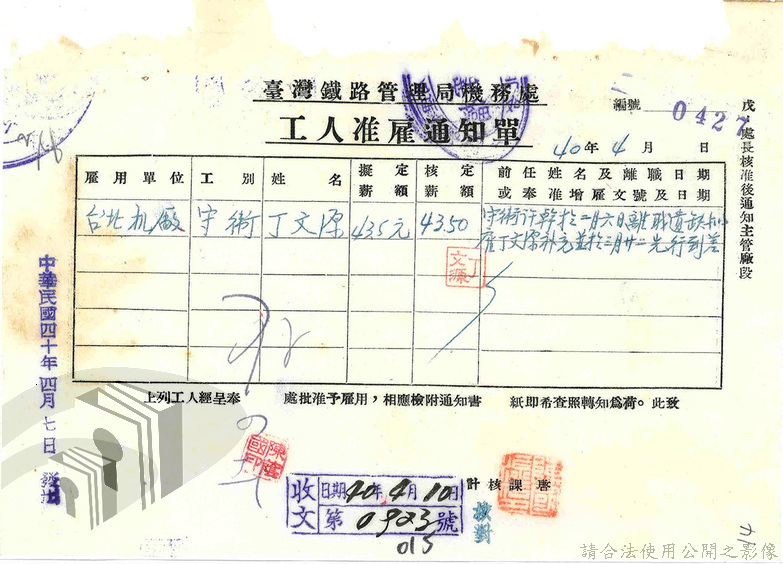 臺灣鐵路管理局機務處
工人准雇通知單
編號 0427
40年4月 日
戊、處長核准後通知主管廠段
雇用單位 工別 姓名 擬定薪額 核定薪額 前任姓名及離職日期或奉准增雇文號及日期
台北机廠 守衛 丁文源 435元 43.50 守衛許幹於二月六日離職遺缺
雇丁文源補充並於三月廿二先行到差
丁文源
上列工人經呈奉 處批准予雇用，相應檢附通知書 紙即希查照轉知為荷。此致
中華民國四十年四月七日 發
收文 日期40年4月10日
第0923號
015
計核課 唐
核對
14
請合法使用公開之影像